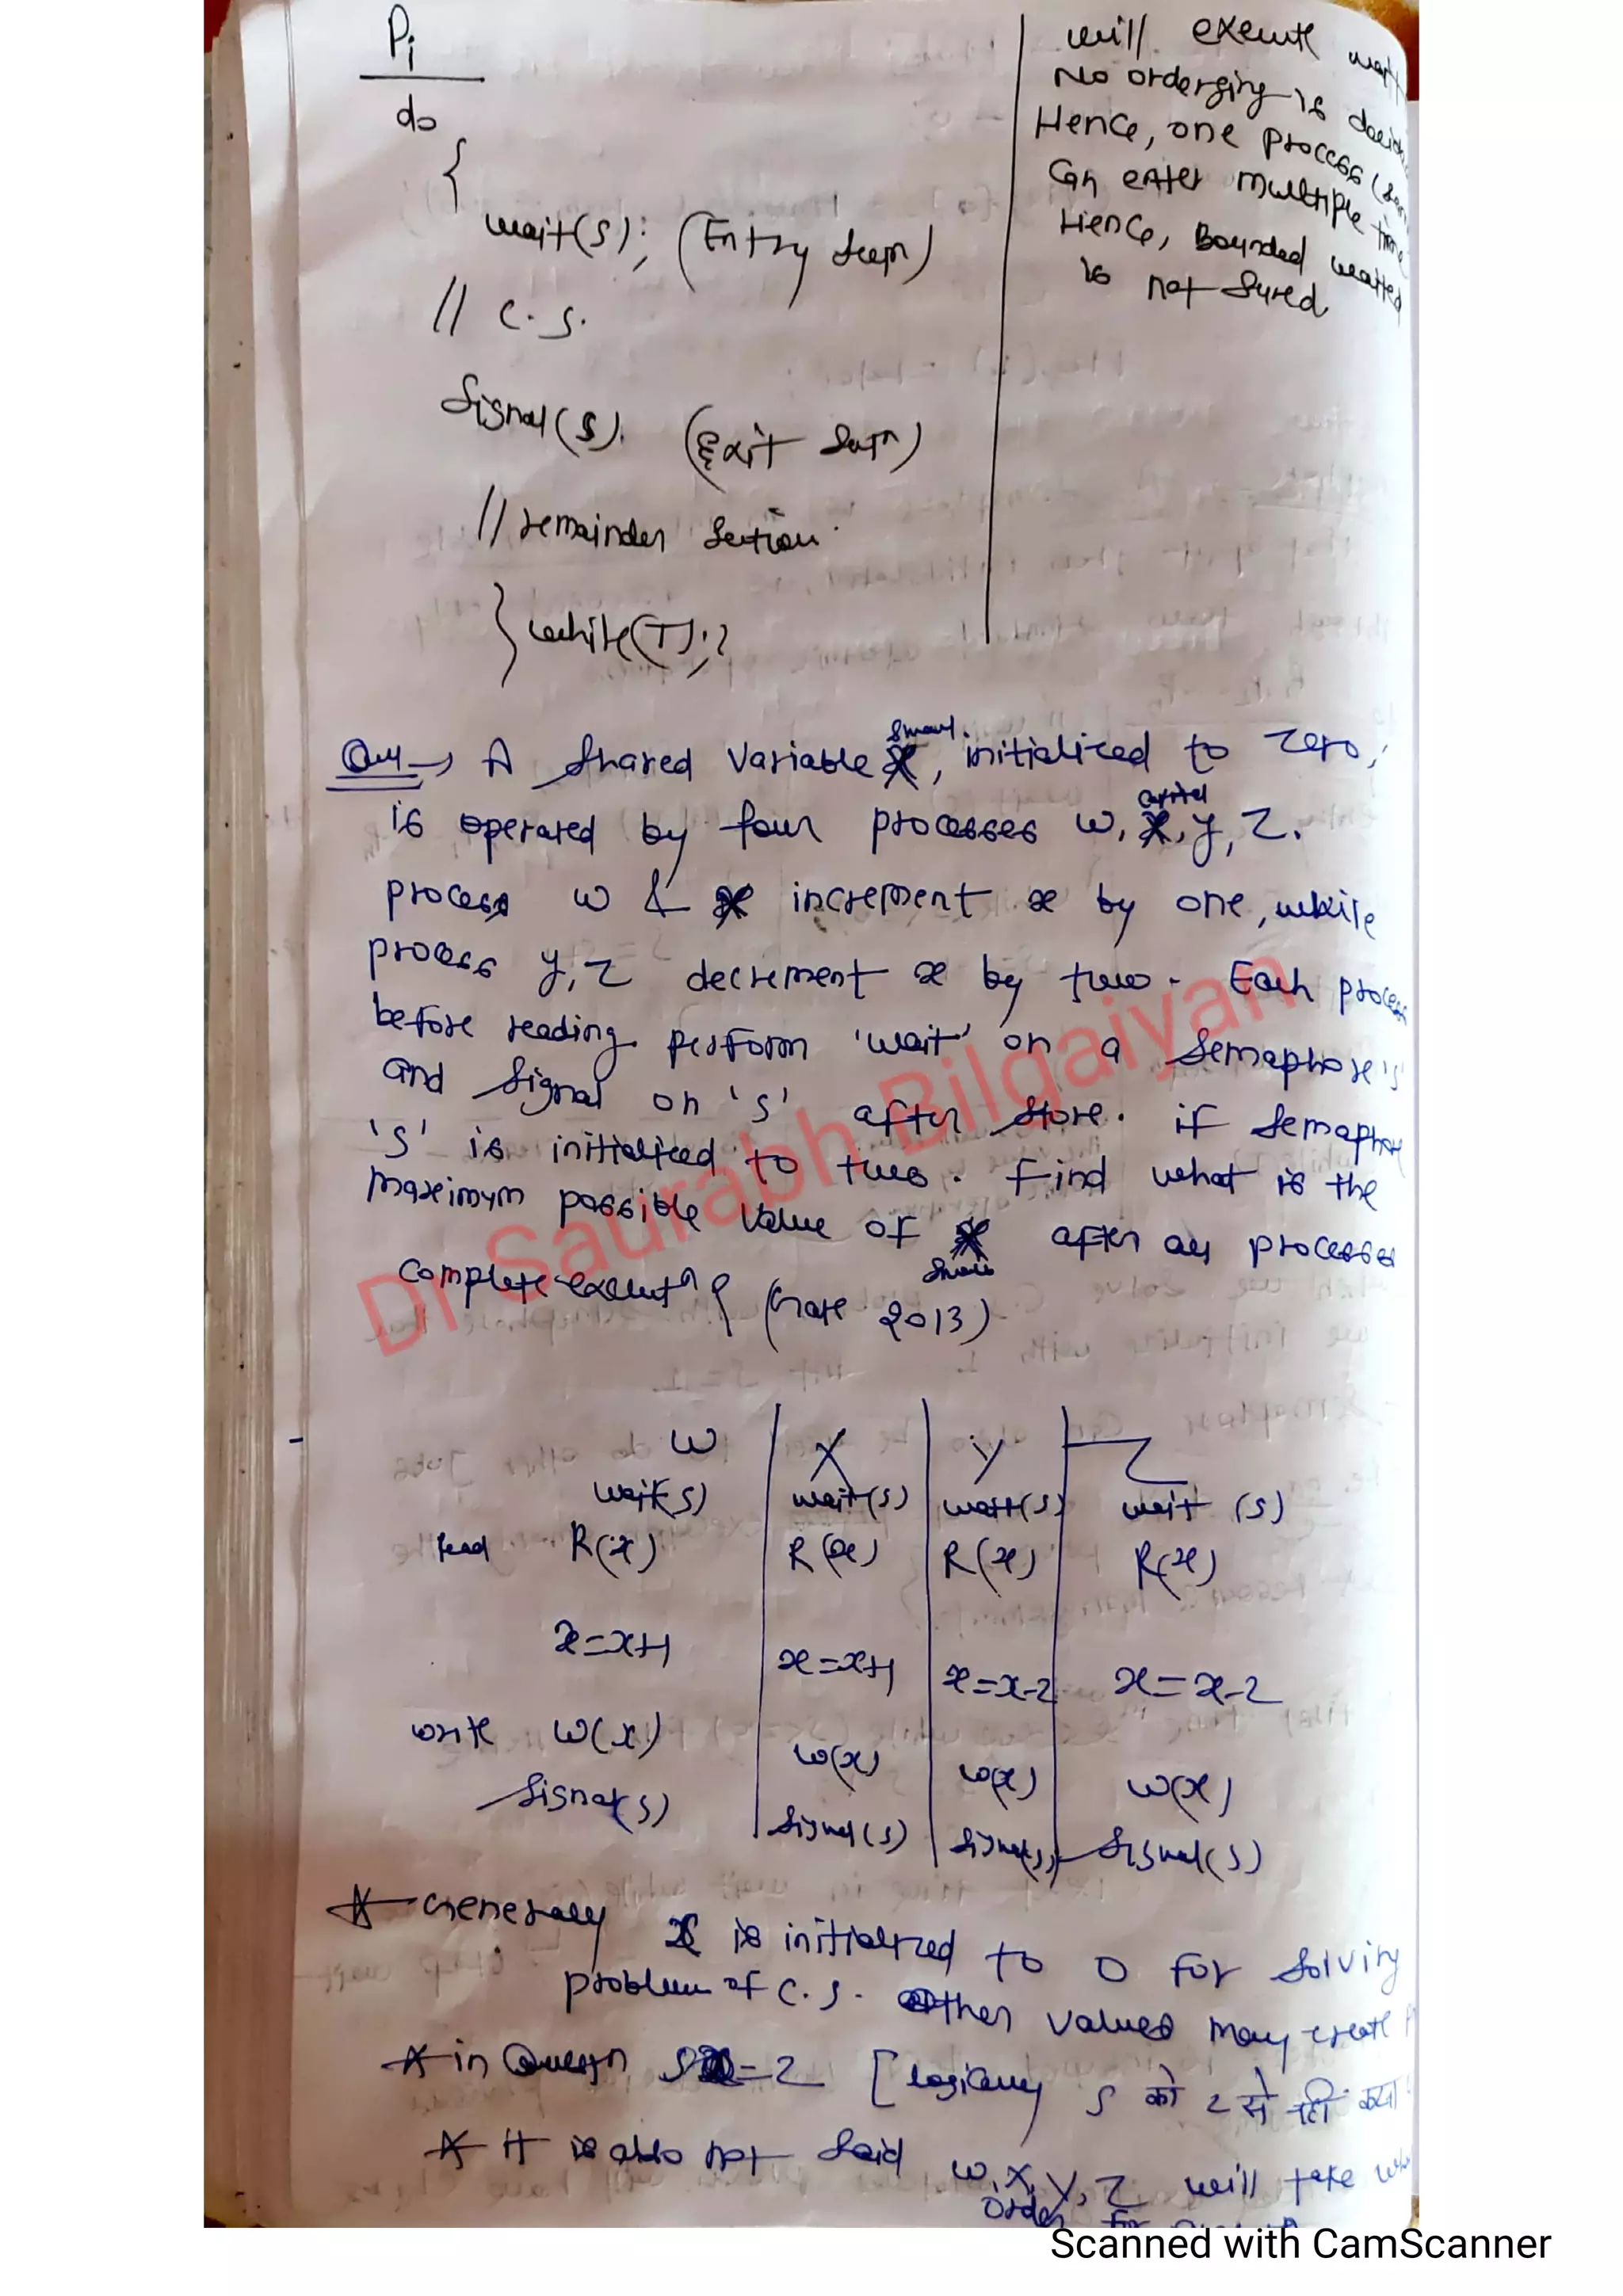 Pi
do
{
wait(S); (Entry
// C.S.
Signal(S). (Exit
// remainder Section
} while(T);
will execute
No ordering is
Hence, one process
Can enter multiple time
Hence, Bounded
is not
A Shared Variable x, initialized to zero,
small
is operated by four processes W, X, Y, Z.
capital
process W & X increment x by one, while
process Y, Z decrement x by two. Each process
before reading perform 'wait' on a Semaphore 's'
and Signal on 's' after store. if Semaphore
's' is initialized to two. Find what is the
maximum possible Value of x after all processes
small
Complete (Gate 2013)
W X Y Z
wait(S) wait(S) wait(S) wait (S)
read R(x) R(x) R(x) R(x)
x=x+1 x=x+1 x=x-2 x=x-2
write W(x) W(x) W(x) W(x)
Signal(S) Signal(S) Signal(S) Signal(S)
Generally x is initialized to 0 for Solving
problem of C.S. Other values may create
in S=2 [logically S को 2 से
It is also not Said W, X, Y, Z will take
order for
Dr Saurabh Bilgaiyan
Scanned with CamScanner